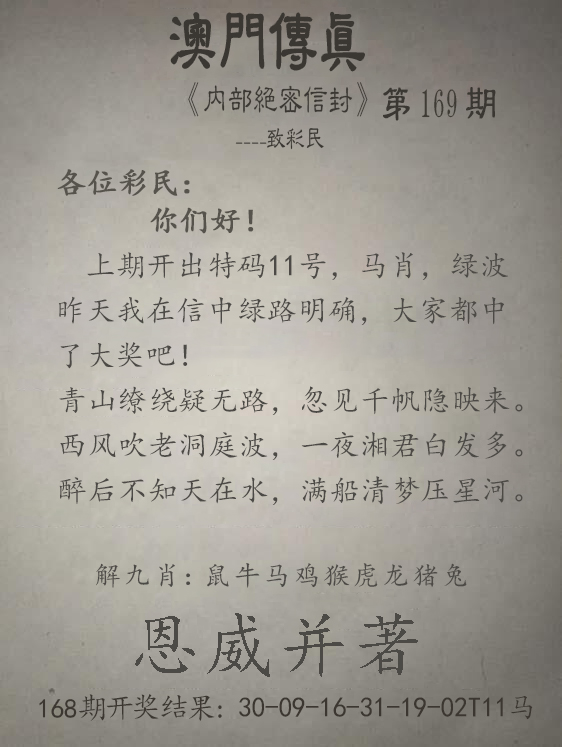 澳門傳眞
《内部絕密信封》第169期
----致彩民
各位彩民：
你们好！
上期开出特码11号，马肖，绿波
昨天我在信中绿路明确，大家都中
了大奖吧！
青山缭绕疑无路，忽见千帆隐映来。
西风吹老洞庭波，一夜湘君白发多。
醉后不知天在水，满船清梦压星河。
解九肖：鼠牛马鸡猴虎龙猪兔
恩威并著
168期开奖结果：30-09-16-31-19-02T11马